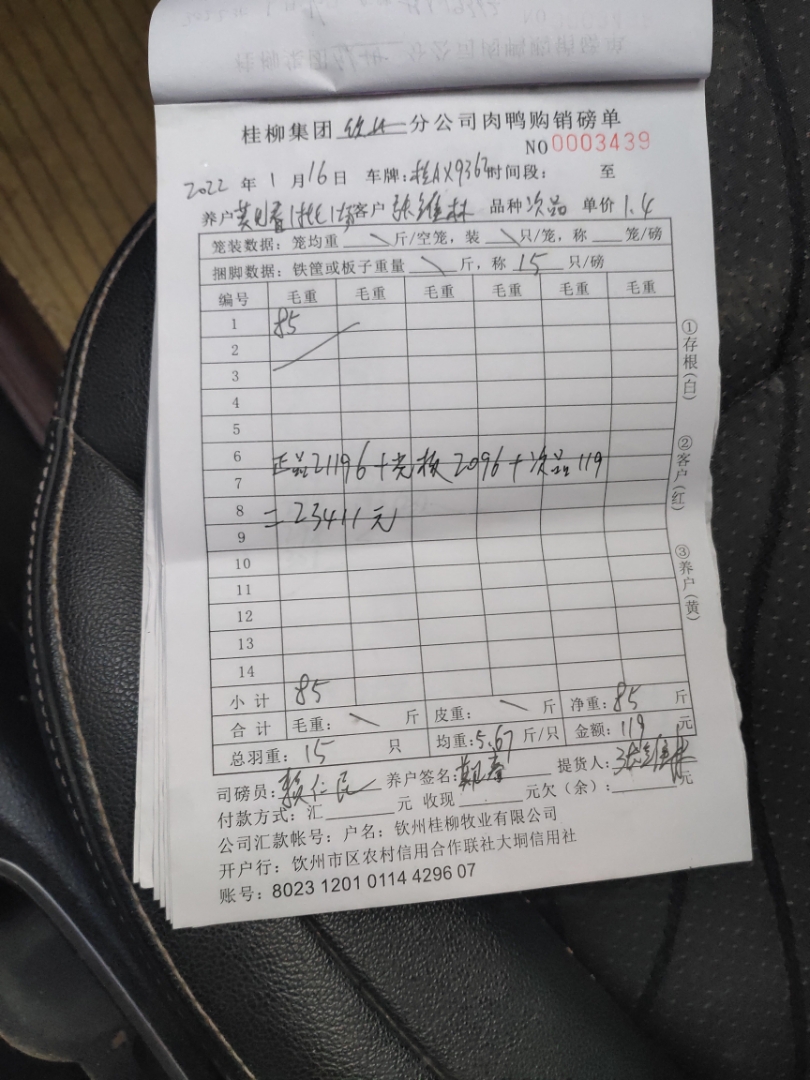 桂柳集团 钦州 分公司肉鸭购销磅单
NO 0003439
2022 年 1 月 16 日 车牌:桂AX9362 时间段: 至
养户 客户 张维林 品种 次品 单价 1.4
笼装数据:笼均重 \ 斤/空笼,装 \ 只/笼,称 笼/磅
捆脚数据:铁筐或板子重量 \ 斤,称 15 只/磅
编号 毛重 毛重 毛重 毛重 毛重 毛重
1 85
2
3
4
5
6
正品21196+光板2096+次品119
7
8
=23411元
9
10
11
12
13
14
小 计 85
合 计 毛重: \ 斤 皮重: \ 斤 净重:85 斤
总羽重:15 只 均重:5.67 斤/只 金额:119 元
司磅员:赖仁民 养户签名: 提货人:张维林
付款方式:汇 元 收现 元欠(余): 元
公司汇款帐号:户名:钦州桂柳牧业有限公司
开户行:钦州市区农村信用合作联社大垌信用社
账号:8023 1201 0114 4296 07
①存根(白)
②客户(红)
③养户(黄)